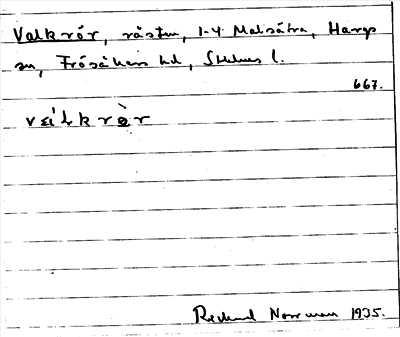 Valkrör, råstu, 1-4 Malsätra, Hargs
sn, Frösåkers hd, Sthlms l.
667.
vàlkrè̱r
Richard Norrman 1935.